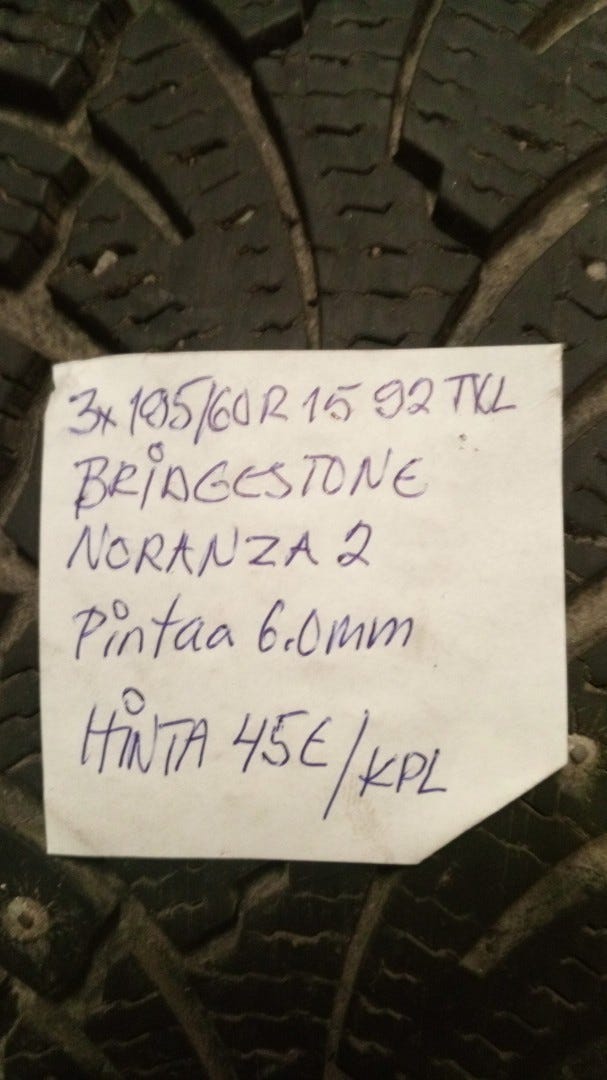 3x 195/60R 15 92 TXL
BRIDGESTONE
NORANZA 2
Pintaa 6.0mm
HINTA 45€/KPL